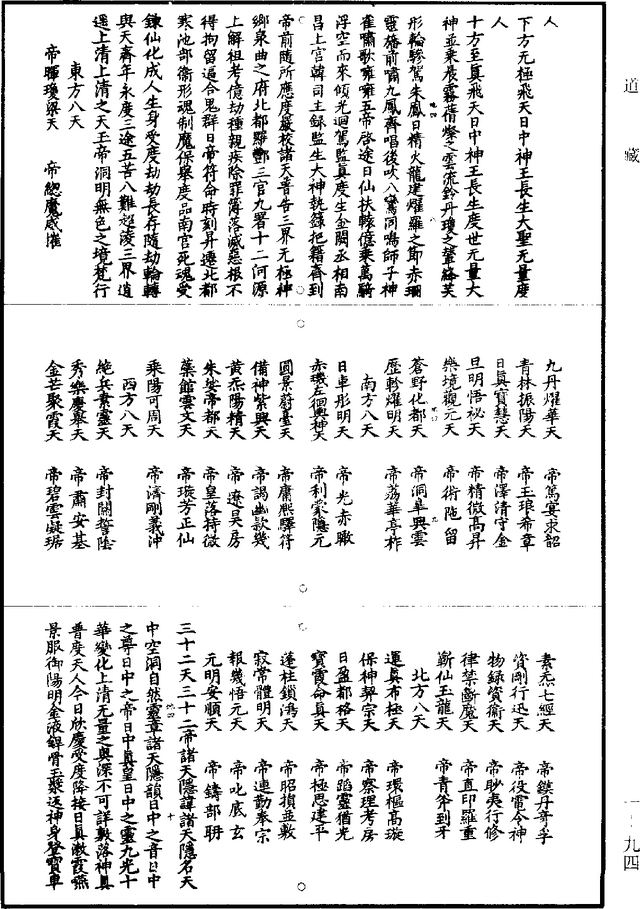 道藏
人
下方无極飛天日中神王長生大聖无量度
人
十方至真飛天日中神王長生度世无量大
神並乘飛霧蒨燦之雲流鈴丹瓊之輦絡芙
形輪驂駕朱鳳日精火龍建燿羅之節赤瓓
靈旛前嘯九鳳齊唱後吹八鸞洞鳴師子神
崔嘯歌嗈嗈五帝啓途日仙扶轄億乘萬騎
浮空而來傾光迴駕監真度生金闕丞相南
昌上宫韓司主録監生大神執録把籍齊到
帝前隨所應度嚴校諸天普告三界无極神
鄉泉曲之府北都羅酆三官九署十二河源
上解祖考億劫種親疾除罪簿落滅惡根不
得拘留逼合鬼群日帝符命時刻昇遷北都
寒池部衞形魂制魔保舉度品南宫死魂受
鍊仙化成人生身受度劫劫長存隨劫輪轉
與天齊年永度三途五苦八難超淩三界逍
遥上清上清之天玉帝洞明無色之境梵行
東方八天
帝暉瓊梁天　帝總魔威摧
九丹燿華天　帝篤宴求韶
青林振陽天　帝王琅希章
日真寶慧天　帝澤清守金
旦明悟祕天　帝精微高昇
樂境觀元天　帝術陁留
蒼野化都天　帝洞華興雲
歷軫燿明天　帝荔華亭柞
南方八天
日車彤明天　帝光赤瞰
赤璣左徊輿神天　帝利蒙隱元
圓景蔚臺天　帝庸熙驛符
備神紫輿天　帝謁幽款幾
黄炁陽精天　帝遼昊房
朱娑帝都天　帝皇落持微
蘂館雲文天　帝璇芳正仙
乘陽可周天　帝濟剛義沖
西方八天
絶兵素靈天　帝封關誓陰
秀樂慶舉天　帝肅安基
金芒聚霞天　帝碧雲凝琚
素炁七經天　帝鏁丹奇孚
資剛行迅天　帝役電令神
物録資衞天　帝眇夷行修
律禁斷魔天　帝直印羅重
斬仙玉龍天　帝青笄到牙
北方八天
運真布極天　帝環樞高璇
保神契宗天　帝察理考房
日盈都臺天　帝蹈靈猶光
寶霞命真天　帝極思建平
蓬柱鎖鴻天　帝昭損並敷
寂常體明天　帝連勳奉宗
報幾悟元天　帝叱底玄
元明安順天　帝鑄部聑
三十二天三十二帝諸天隱諱諸天隱名天
中空洞自然靈章諸天隱韻日中之音日中
之尊日中之帝日中真皇日中之靈九光十
華變化上清无量之奥深不可詳敷落神真
普度天人今日欣慶受度降接日真漱霞嚥
景服御陽明金液鍊骨玉漿返神身登寶車
一—九四